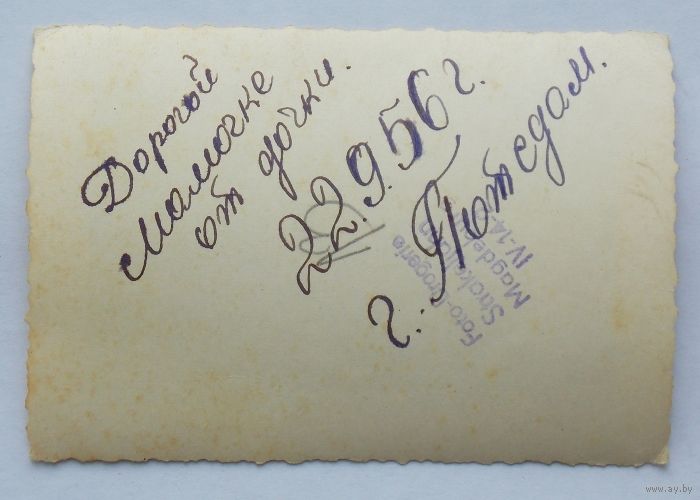 Дорогой
мамочке
от дочки.
22.9.56 г.
г. Потсдам.
Foto-Drogerie
Magdeburg
IV-14-
www.ay.by